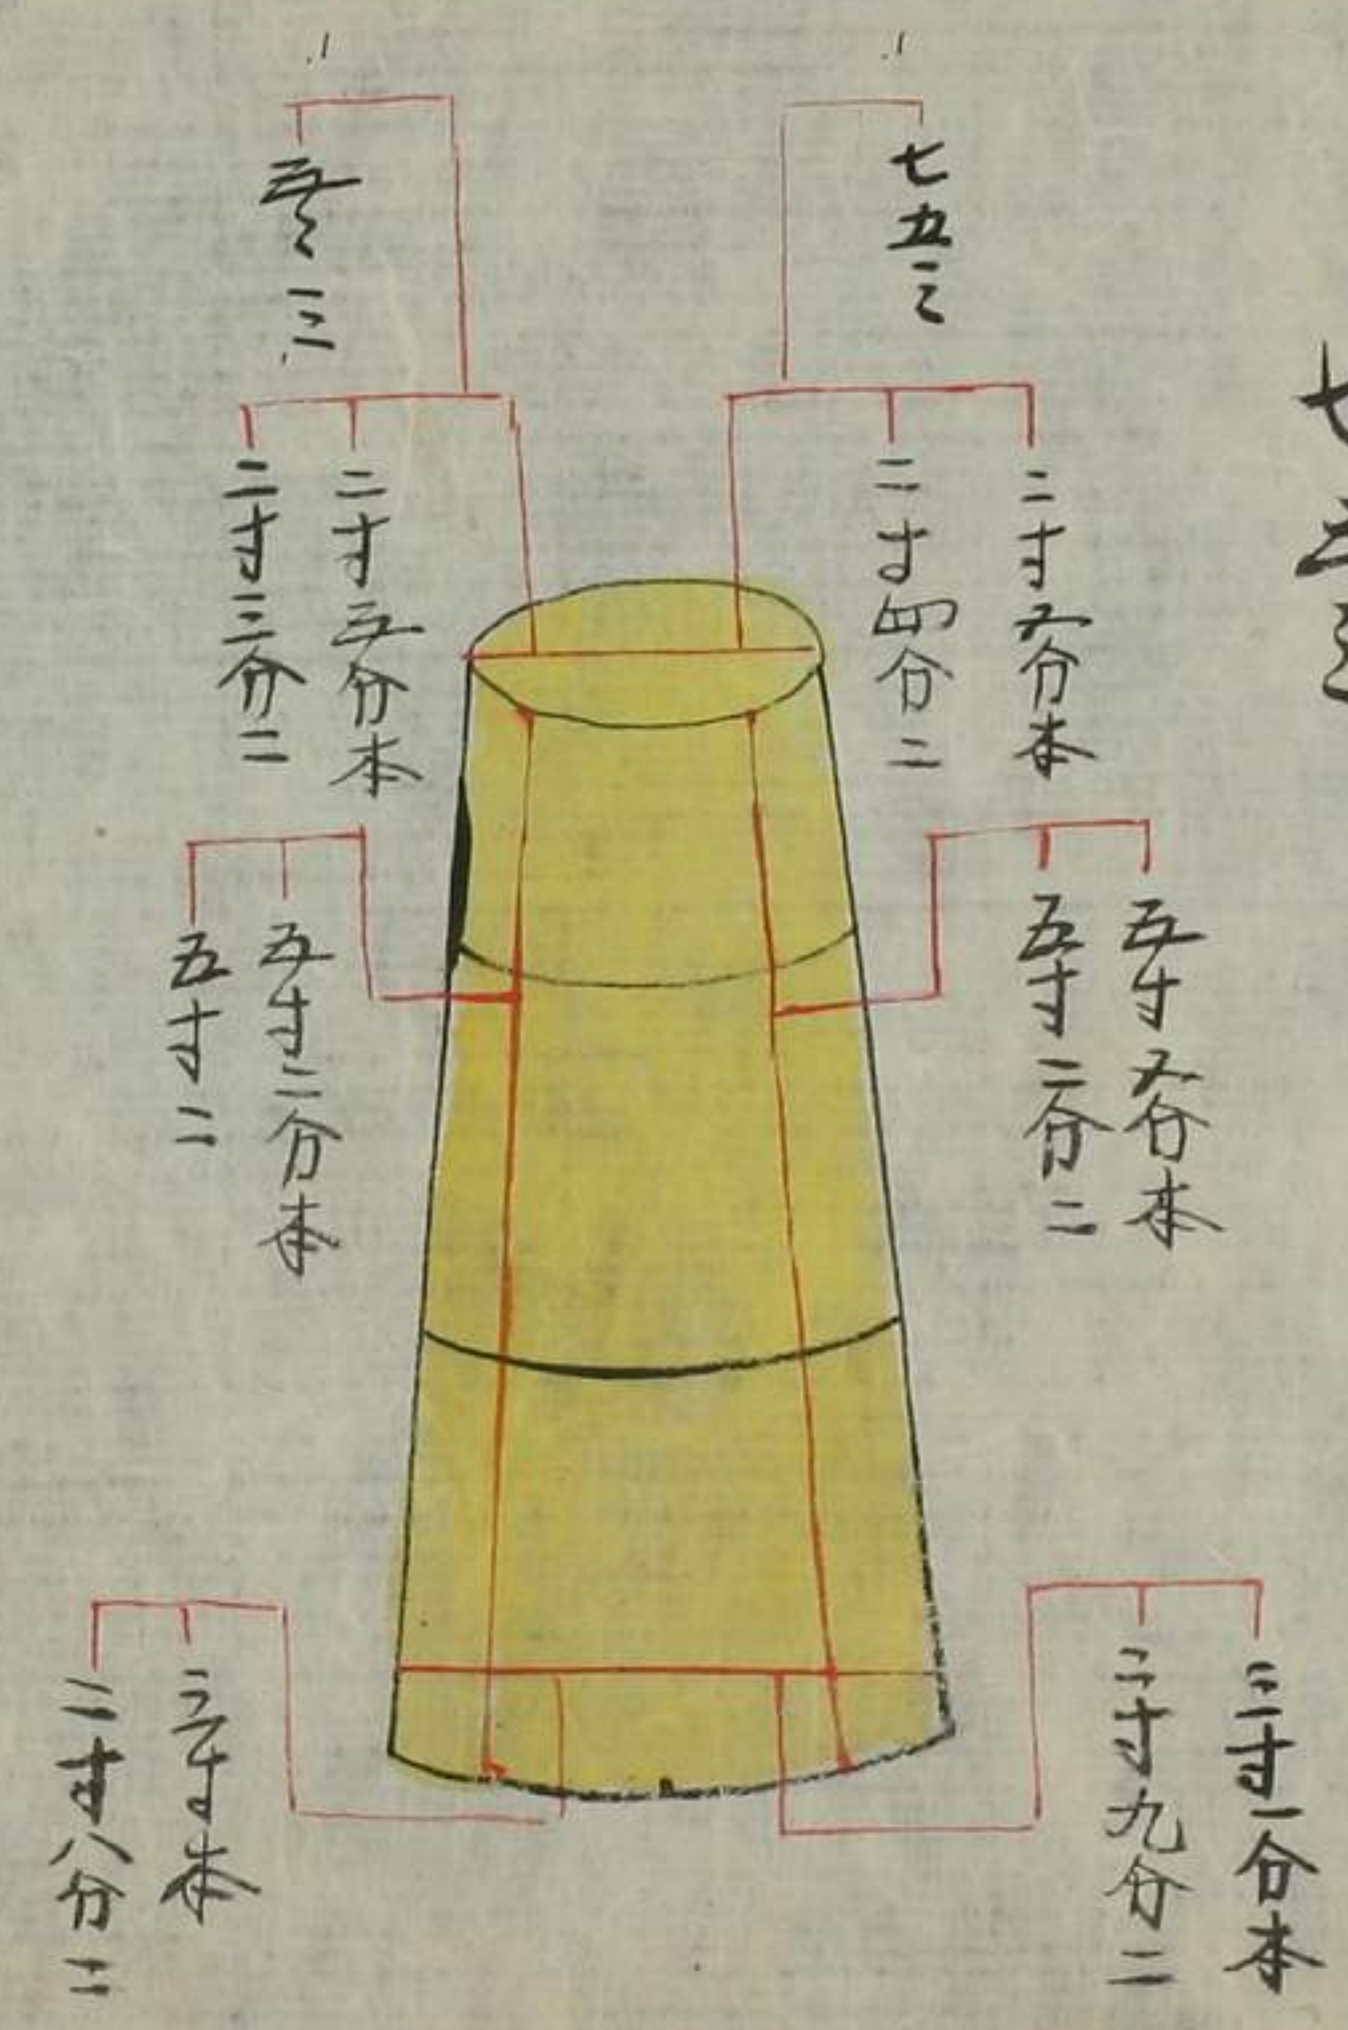 七五三
二寸五分本
二寸四分二
五寸五分本
五寸二分二
三寸一分本
二寸九分二
五々三
二寸五分本
二寸三分二
五寸二分本
五寸二
三寸本
二寸八分二